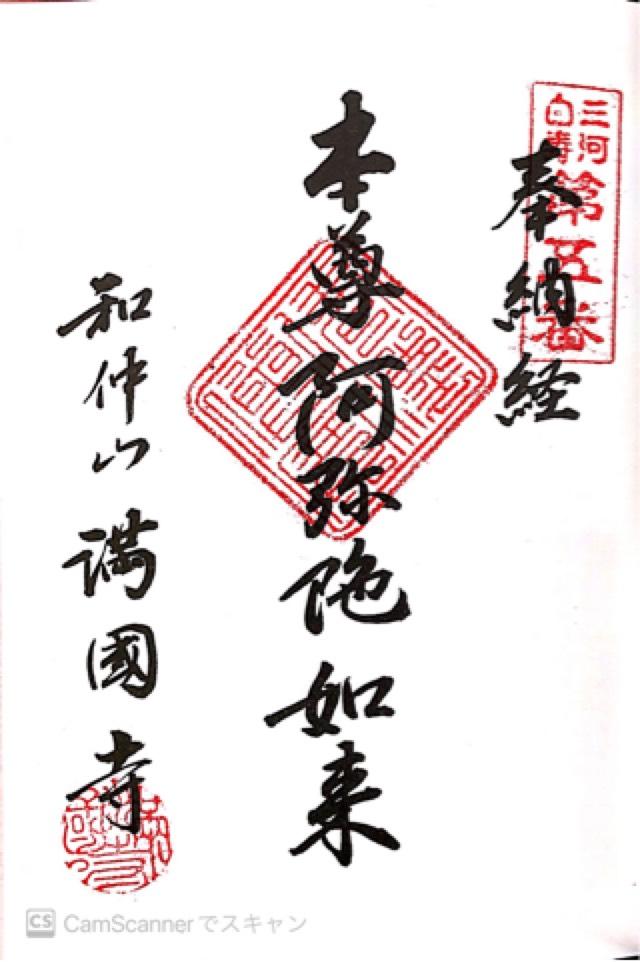 三河
白寿
第五番
奉納経
本尊阿弥陀如来
和仲山満國寺
CS CamScannerでスキャン